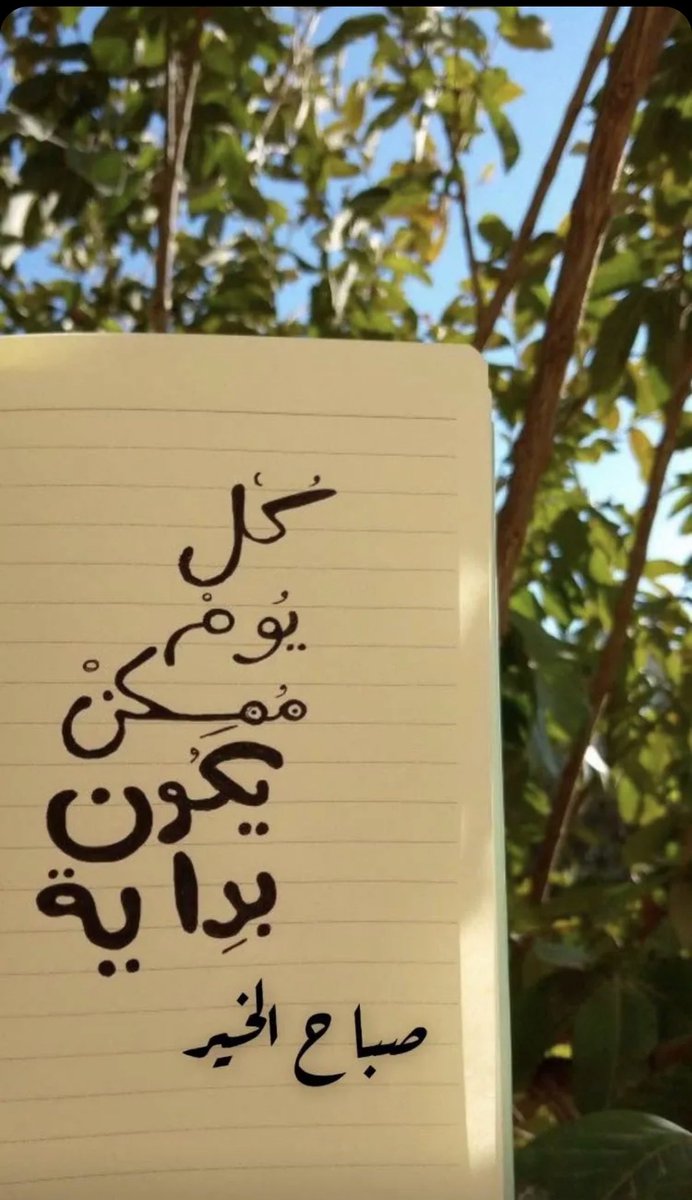 كُل
يُومْ
مُمِكنْ
يكُون
بدِاية
صباح الخير